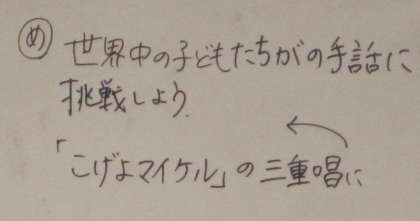 め 世界中の子どもたちがの手話に
挑戦しよう
「こげよマイケル」の三重唱に